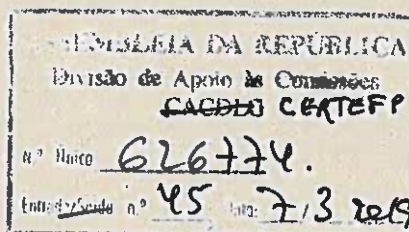 ASSEMBLEIA DA REPÚBLICA
Divisão de Apoio às Comissões
CACDLG CERTEFP
N.º Único 626774.
Entrada/Saída n.º 45 Data: 7/3 2019